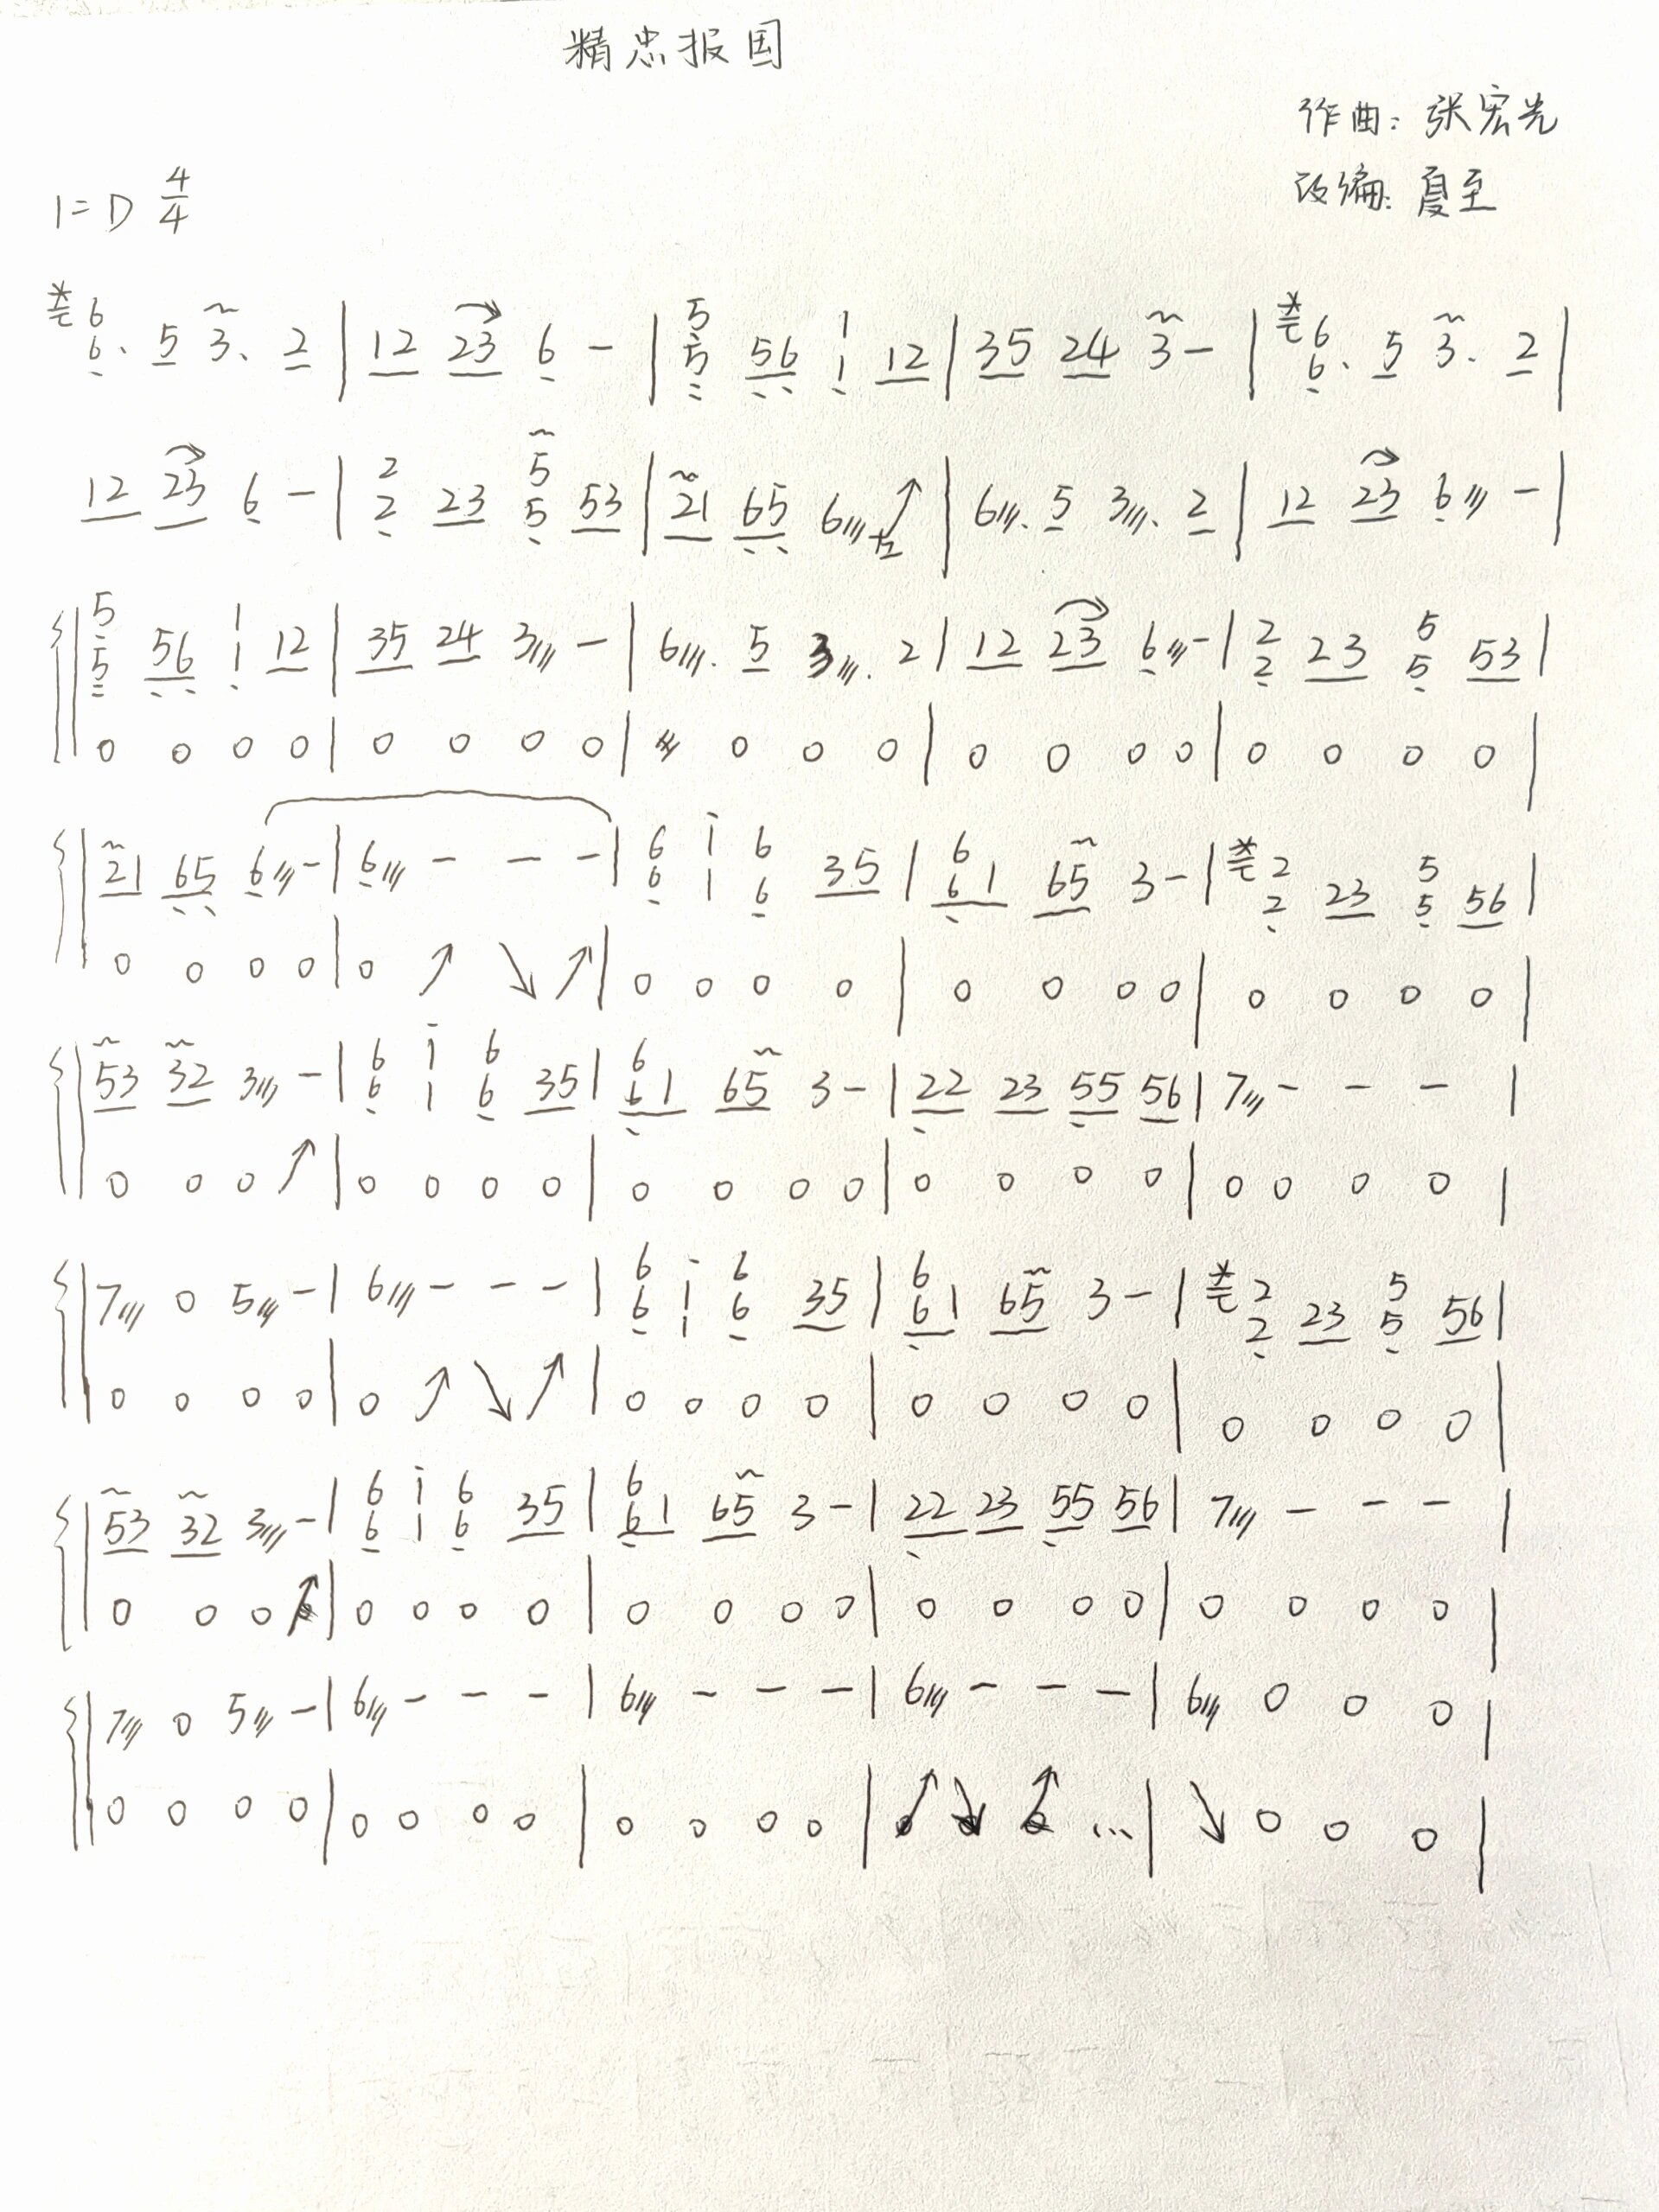 精忠报国
作曲: 张宏光
改编: 夏至
1=D 4/4
6 5 1 6
6. 5 3. 2 | 12 23 6 - | 5 56 1 12 | 35 24 3 - | 6. 5 3. 2 |
2 5
12 23 6 - | 2 23 5 53 | 21 65 6/// ↗ | 6///. 5 3///. 2 | 12 23 6/// - |
5 1 2 5
5 56 1 12 | 35 24 3/// - | 6///. 5 3///. 2 | 12 23 6/// - | 2 23 5 53 |
0 0 0 0 | 0 0 0 0 | 0 0 0 | 0 0 0 0 | 0 0 0 0 |
6 i 6 6 2 5
21 65 6/// - | 6/// - - - | 6 1 6 35 | 61 65 3 - | 2 23 5 56 |
0 0 0 0 | 0 ↗ ↘ ↗ | 0 0 0 0 | 0 0 0 0 | 0 0 0 0 |
6 i 6 6
53 32 3/// - | 6 1 6 35 | 61 65 3 - | 22 23 55 56 | 7/// - - - |
0 0 0 ↗ | 0 0 0 0 | 0 0 0 0 | 0 0 0 0 | 0 0 0 0 |
6 6 6 2 5
7/// 0 5/// - | 6/// - - - | 6 i 6 35 | 61 65 3 - | 2 23 5 56 |
0 0 0 0 | 0 ↗ ↘ ↗ | 0 0 0 0 | 0 0 0 0 | 0 0 0 0 |
6 i 6 6
53 32 3/// - | 6 1 6 35 | 61 65 3 - | 22 23 55 56 | 7/// - - - |
0 0 0 ↗ | 0 0 0 0 | 0 0 0 0 | 0 0 0 0 | 0 0 0 0 |
7/// 0 5/// - | 6/// - - - | 6/// - - - | 6/// - - - | 6/// 0 0 0 |
0 0 0 0 | 0 0 0 0 | 0 0 0 0 | ↗ ↘ ↗ ... | ↘ 0 0 0 |